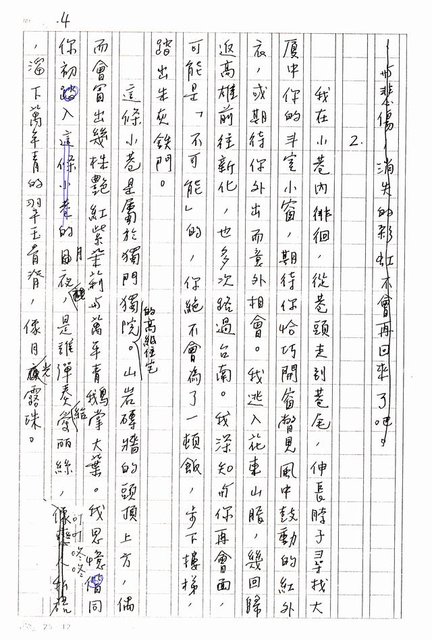 與悲傷,消失的彩虹不會再回來了吧。
2.
我在小巷內徘徊,從巷頭走到巷尾,伸長脖子尋找大
廈中你的斗室小窗,期待你恰巧開窗瞥見風中鼓動的紅外
衣,或期待你外出而意外相會。我逃入花東山脂,幾回歸
返高雄前往新化,也多次路過台南。我深知與你再會面,
可能是「不可能」的,你絕不會為了一頓飯,步下樓梯,
踏出生灰鉄門。
這條小巷是屬於獨門獨院的高級住宅。山岩磚牆的頭頂上方,偶
而會冒出幾株艷紅紫茉莉與萬年青鵝掌大葉。我思憶偕同
你初踏入這條小巷的月夜,是誰彈奏給愛麗絲,叮叮咚咚
,溜下萬年青的翠玉脊背,像月光露珠。
4